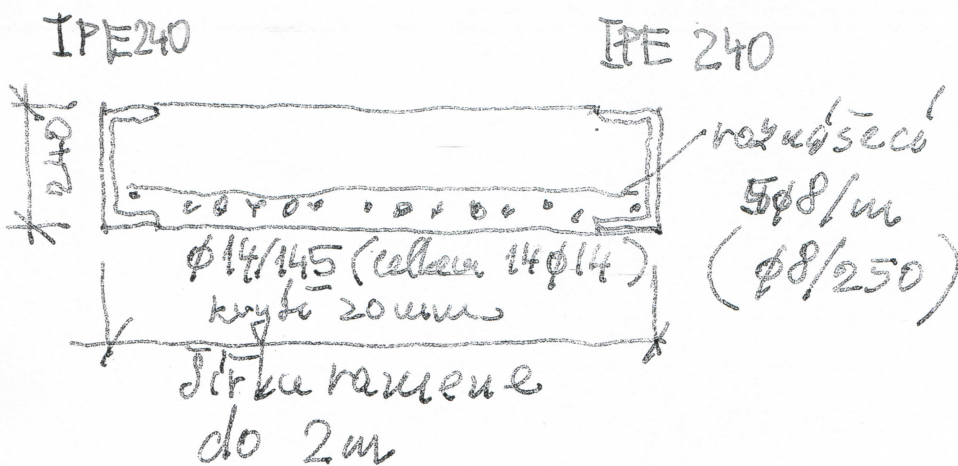 IPE240
IPE 240
240
roznášecí
5ø8/m
(ø8/250)
ø14/145 (celkem 14ø14)
krytí 20mm
Šířka ramene
do 2m